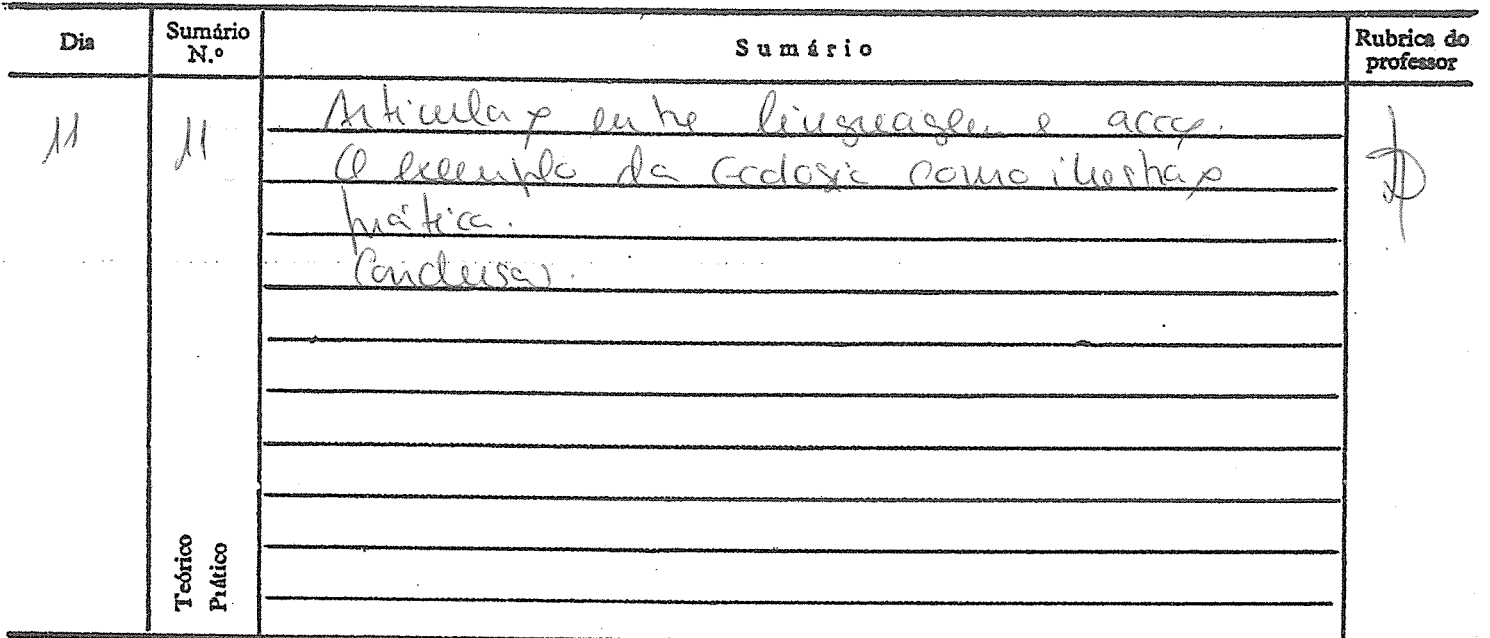 Dia Sumário N.º Sumário Rubrica do professor
11 11 Articulação entre linguagem e acção.
O exemplo da Ecologia como ilustração
prática.
Conclusão.
Teórico
Prático